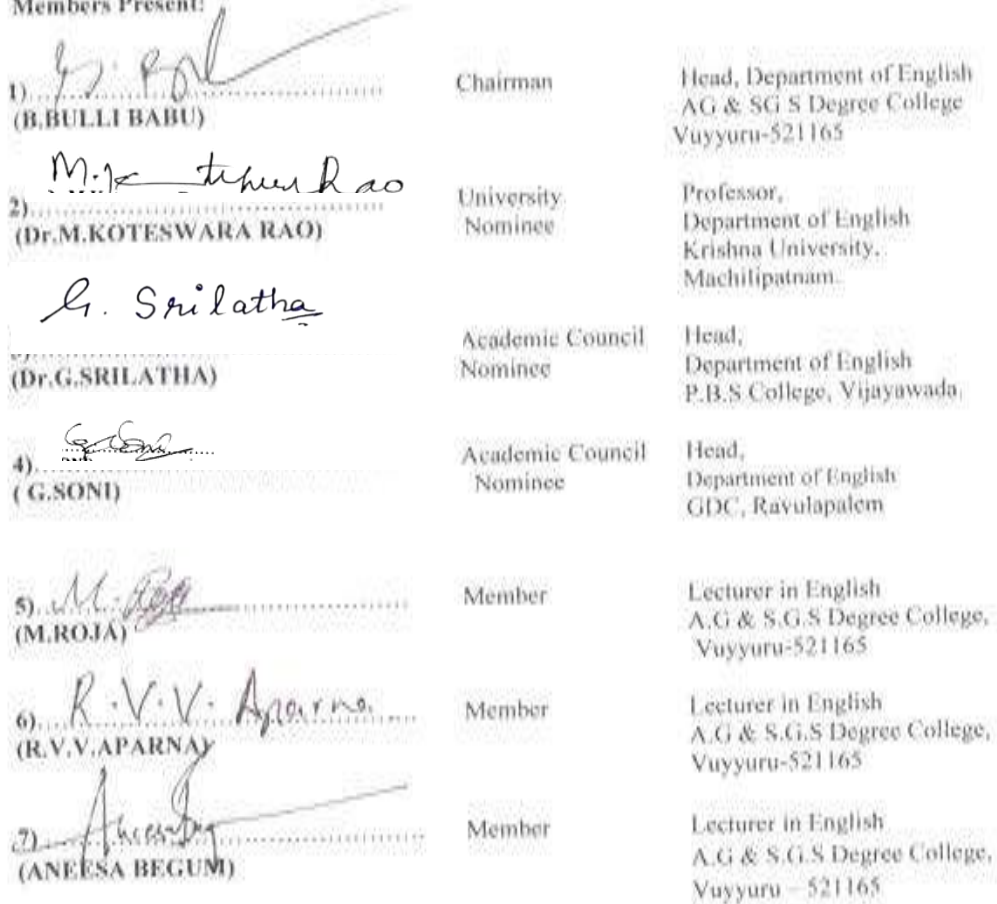 Members Present:
1)
(B.BULLI BABU)
Chairman
Head, Department of English
AG & SG S Degree College
Vuyyuru-521165
M.K
Rao
2)
(Dr.M.KOTESWARA RAO)
University
Nominee
Professor,
Department of English
Krishna University,
Machilipatnam.
G. Srilatha
(Dr.G.SRILATHA)
Academic Council
Nominee
Head,
Department of English
P.B.S College, Vijayawada.
4)
( G.SONI)
Academic Council
Nominee
Head,
Department of English
GDC, Ravulapalem
5) M.
(M.ROJA)
Member
Lecturer in English
A.G & S.G.S Degree College,
Vuyyuru-521165
6) R.V.V. Aparna
(R.V.V.APARNA)
Member
Lecturer in English
A.G & S.G.S Degree College,
Vuyyuru-521165
7)
(ANEESA BEGUM)
Member
Lecturer in English
A.G & S.G.S Degree College,
Vuyyuru – 521165